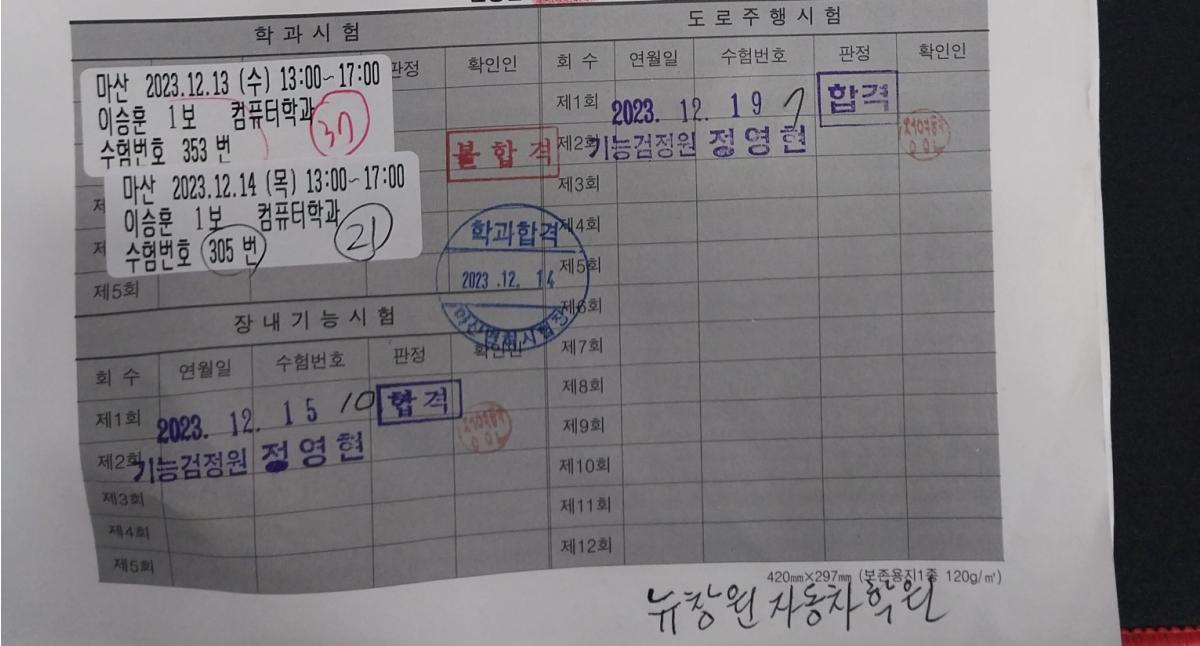 학과시험
판정 확인인
마산 2023.12.13 (수) 13:00~17:00
이승훈 1보 컴퓨터학과
수험번호 353 번
37
불합격
마산 2023.12.14 (목) 13:00~17:00
이승훈 1보 컴퓨터학과
수험번호 305 번
21
제5회
학과합격
2023.12. 14
마산면허시험장
장내기능시험
회수 연월일 수험번호 판정 확인인
제1회 2023. 12. 15 10 합격
제2회 기능검정원 정영현
제3회
제4회
제5회
도로주행시험
회수 연월일 수험번호 판정 확인인
제1회 2023. 12. 19 7 합격
제2회 기능검정원 정영현
제3회
제4회
제5회
제6회
제7회
제8회
제9회
제10회
제11회
제12회
420㎜×297㎜ (보존용지1종 120g/㎡)
뉴창원 자동차학원